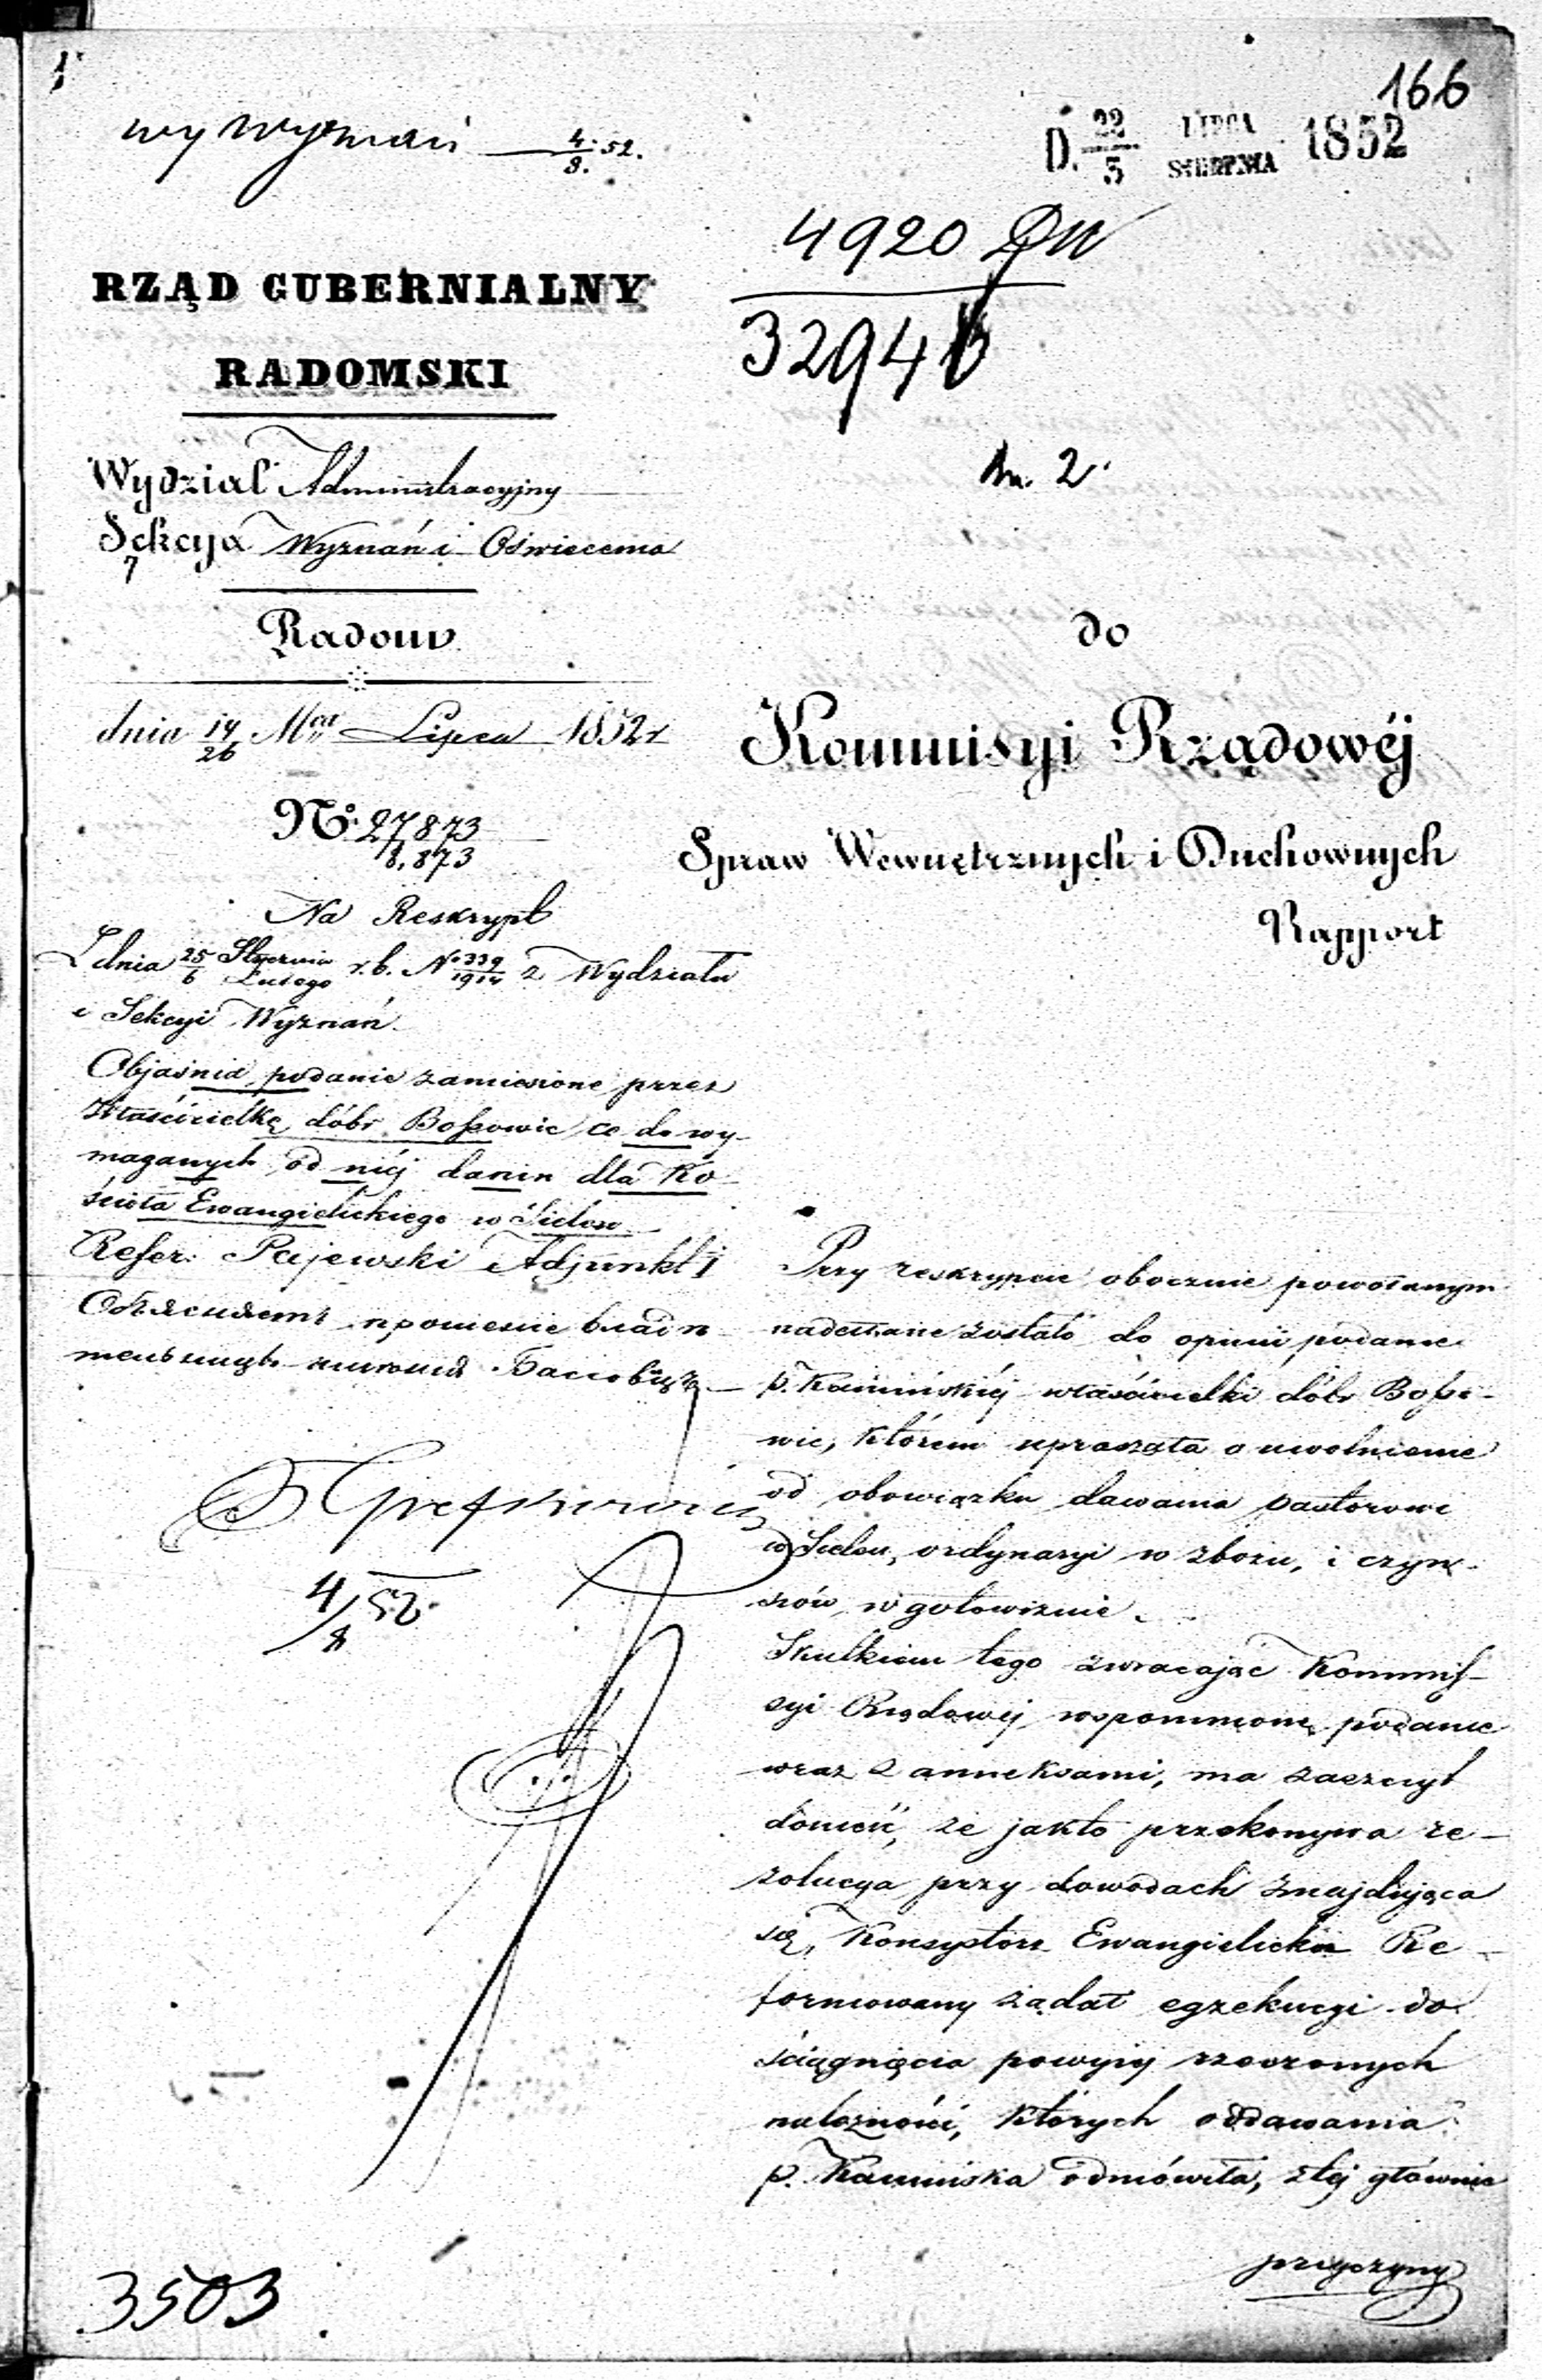 166
wyznań 4/8. 52.
D. 22/3 LIPCA/SIERPNIA 1852
4920
32941
RZĄD GUBERNIALNY
RADOMSKI
Wydział Administracyjny
Sekcya Wyznań i Oświecenia
7
Radom
dnia 14/26 Mca Lipca 1852 r
No. 27873
8,873
Na Reskrypt
Z dnia 25/6 Stycznia/Lutego r. b. No 339/1914 z Wydziału
i Sekcyi Wyznań.
Objaśnia podanie zaniesione przez
Właścicielkę dóbr Bossowic co do wy-
maganych od niéj danin dla Ko-
ścioła Ewangielickiego w Sielcu
Refer: Pajewski Adjunkt I
4/8 52.
3503
2.
do
Kommisyi Rządowéj
Spraw Wewnętrznych i Duchownych
Rapport
Przy reskrypcie obocznie powołanym
nadesłane zostało do opinii podanie
p. Kamińskiéj właścicielki dóbr Bosso-
wic, którem upraszała o uwolnienie
od obowiązku dawania pastorowi
w Sielcu, ordynaryi w zbożu, i czyn-
szów w gotowiznie.
Skutkiem tego zwracając Kommis-
syi Rządowéj wspomnione podanie
wraz z anneksami, ma zaszczyt
donieść, że jak to przekonywa re-
zolucya przy dowodach znajdująca
się, Konsystorz Ewangielicko Re-
formowany żądał egzekucyi do
ściągnięcia powyżéj rzeczonych
należności, których oddawania
p. Kamińska odmówiła, z téj głównie
przyczyny